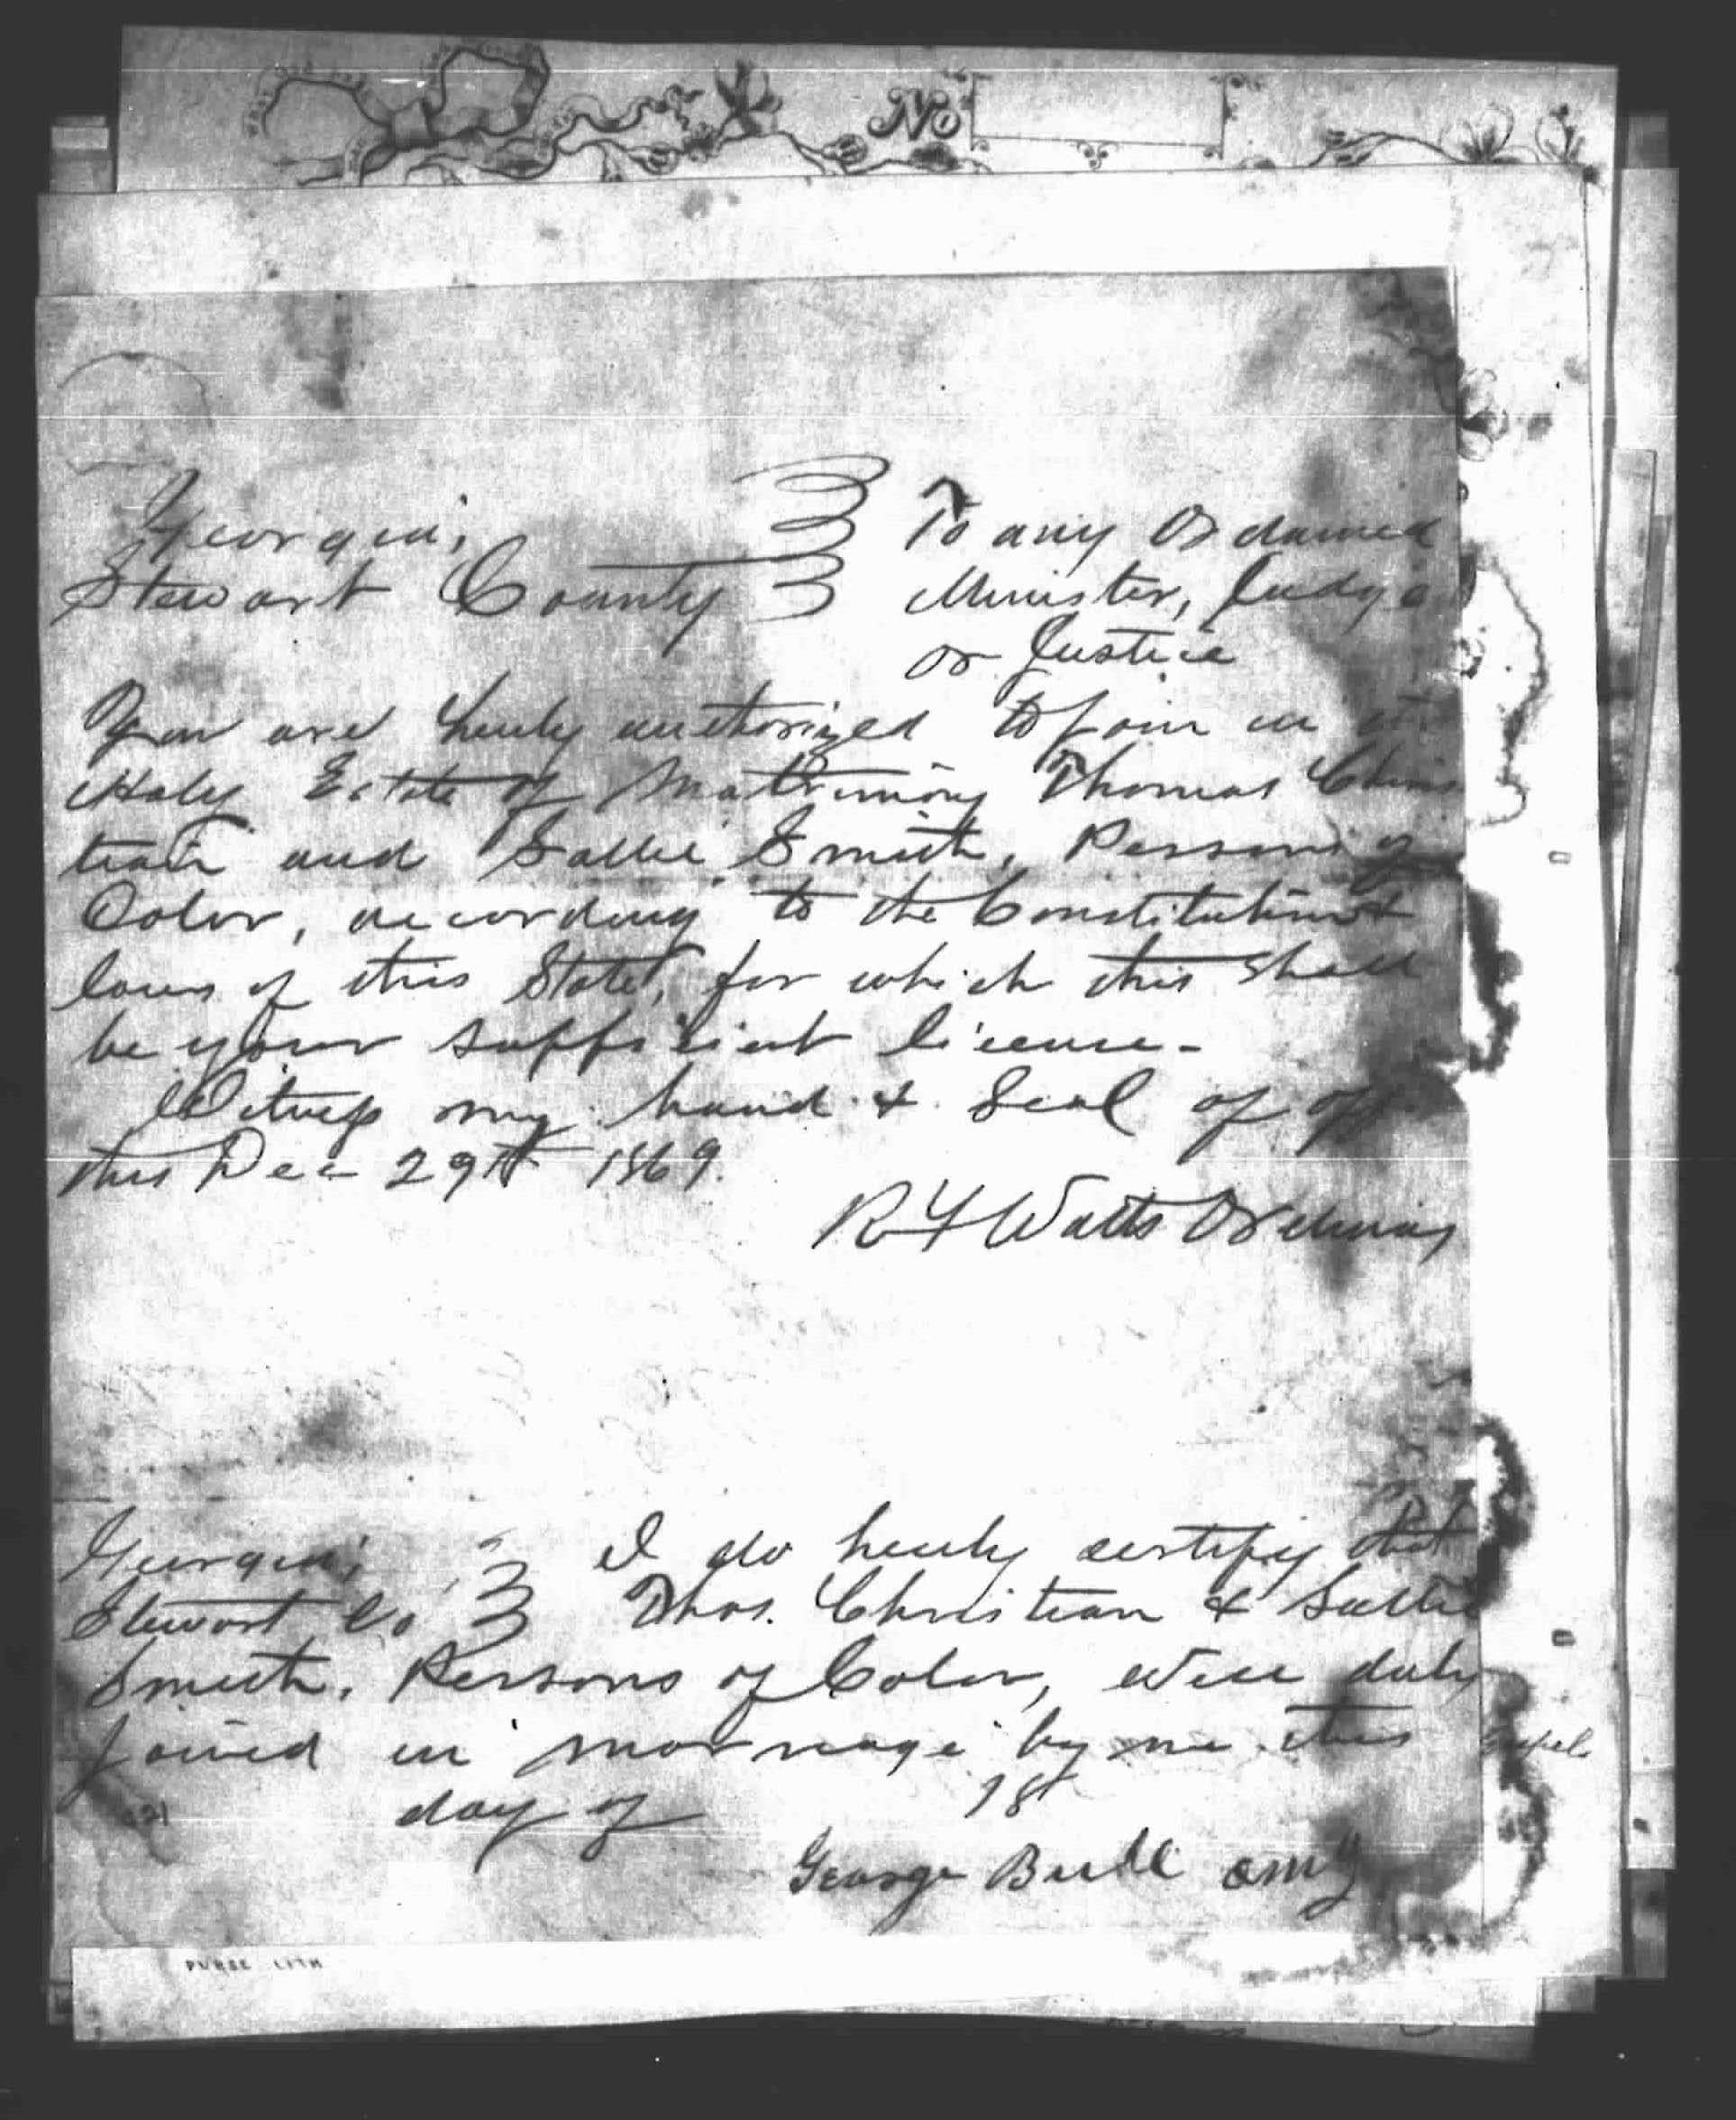 No
Georgia, To any Ordained
Stewart County Minister, Judge
or Justice
You are hereby authorized to join in the
Holy Estate of Matrimony Thomas Chris
tian and Sallie Smith, Persons of
Color, according to the Constitution &
laws of this State, for which this shall
be your sufficient license-
Witness my hand & Seal of off
this Dec 29th 1869.
R F Watts Ordinary
Georgia, I do hereby certify that
Stewart Co Thos. Christian & Sallie
Smith, Persons of Color, were duly
joined in marriage by me this
day of 18
George Bull
PURSE LITH